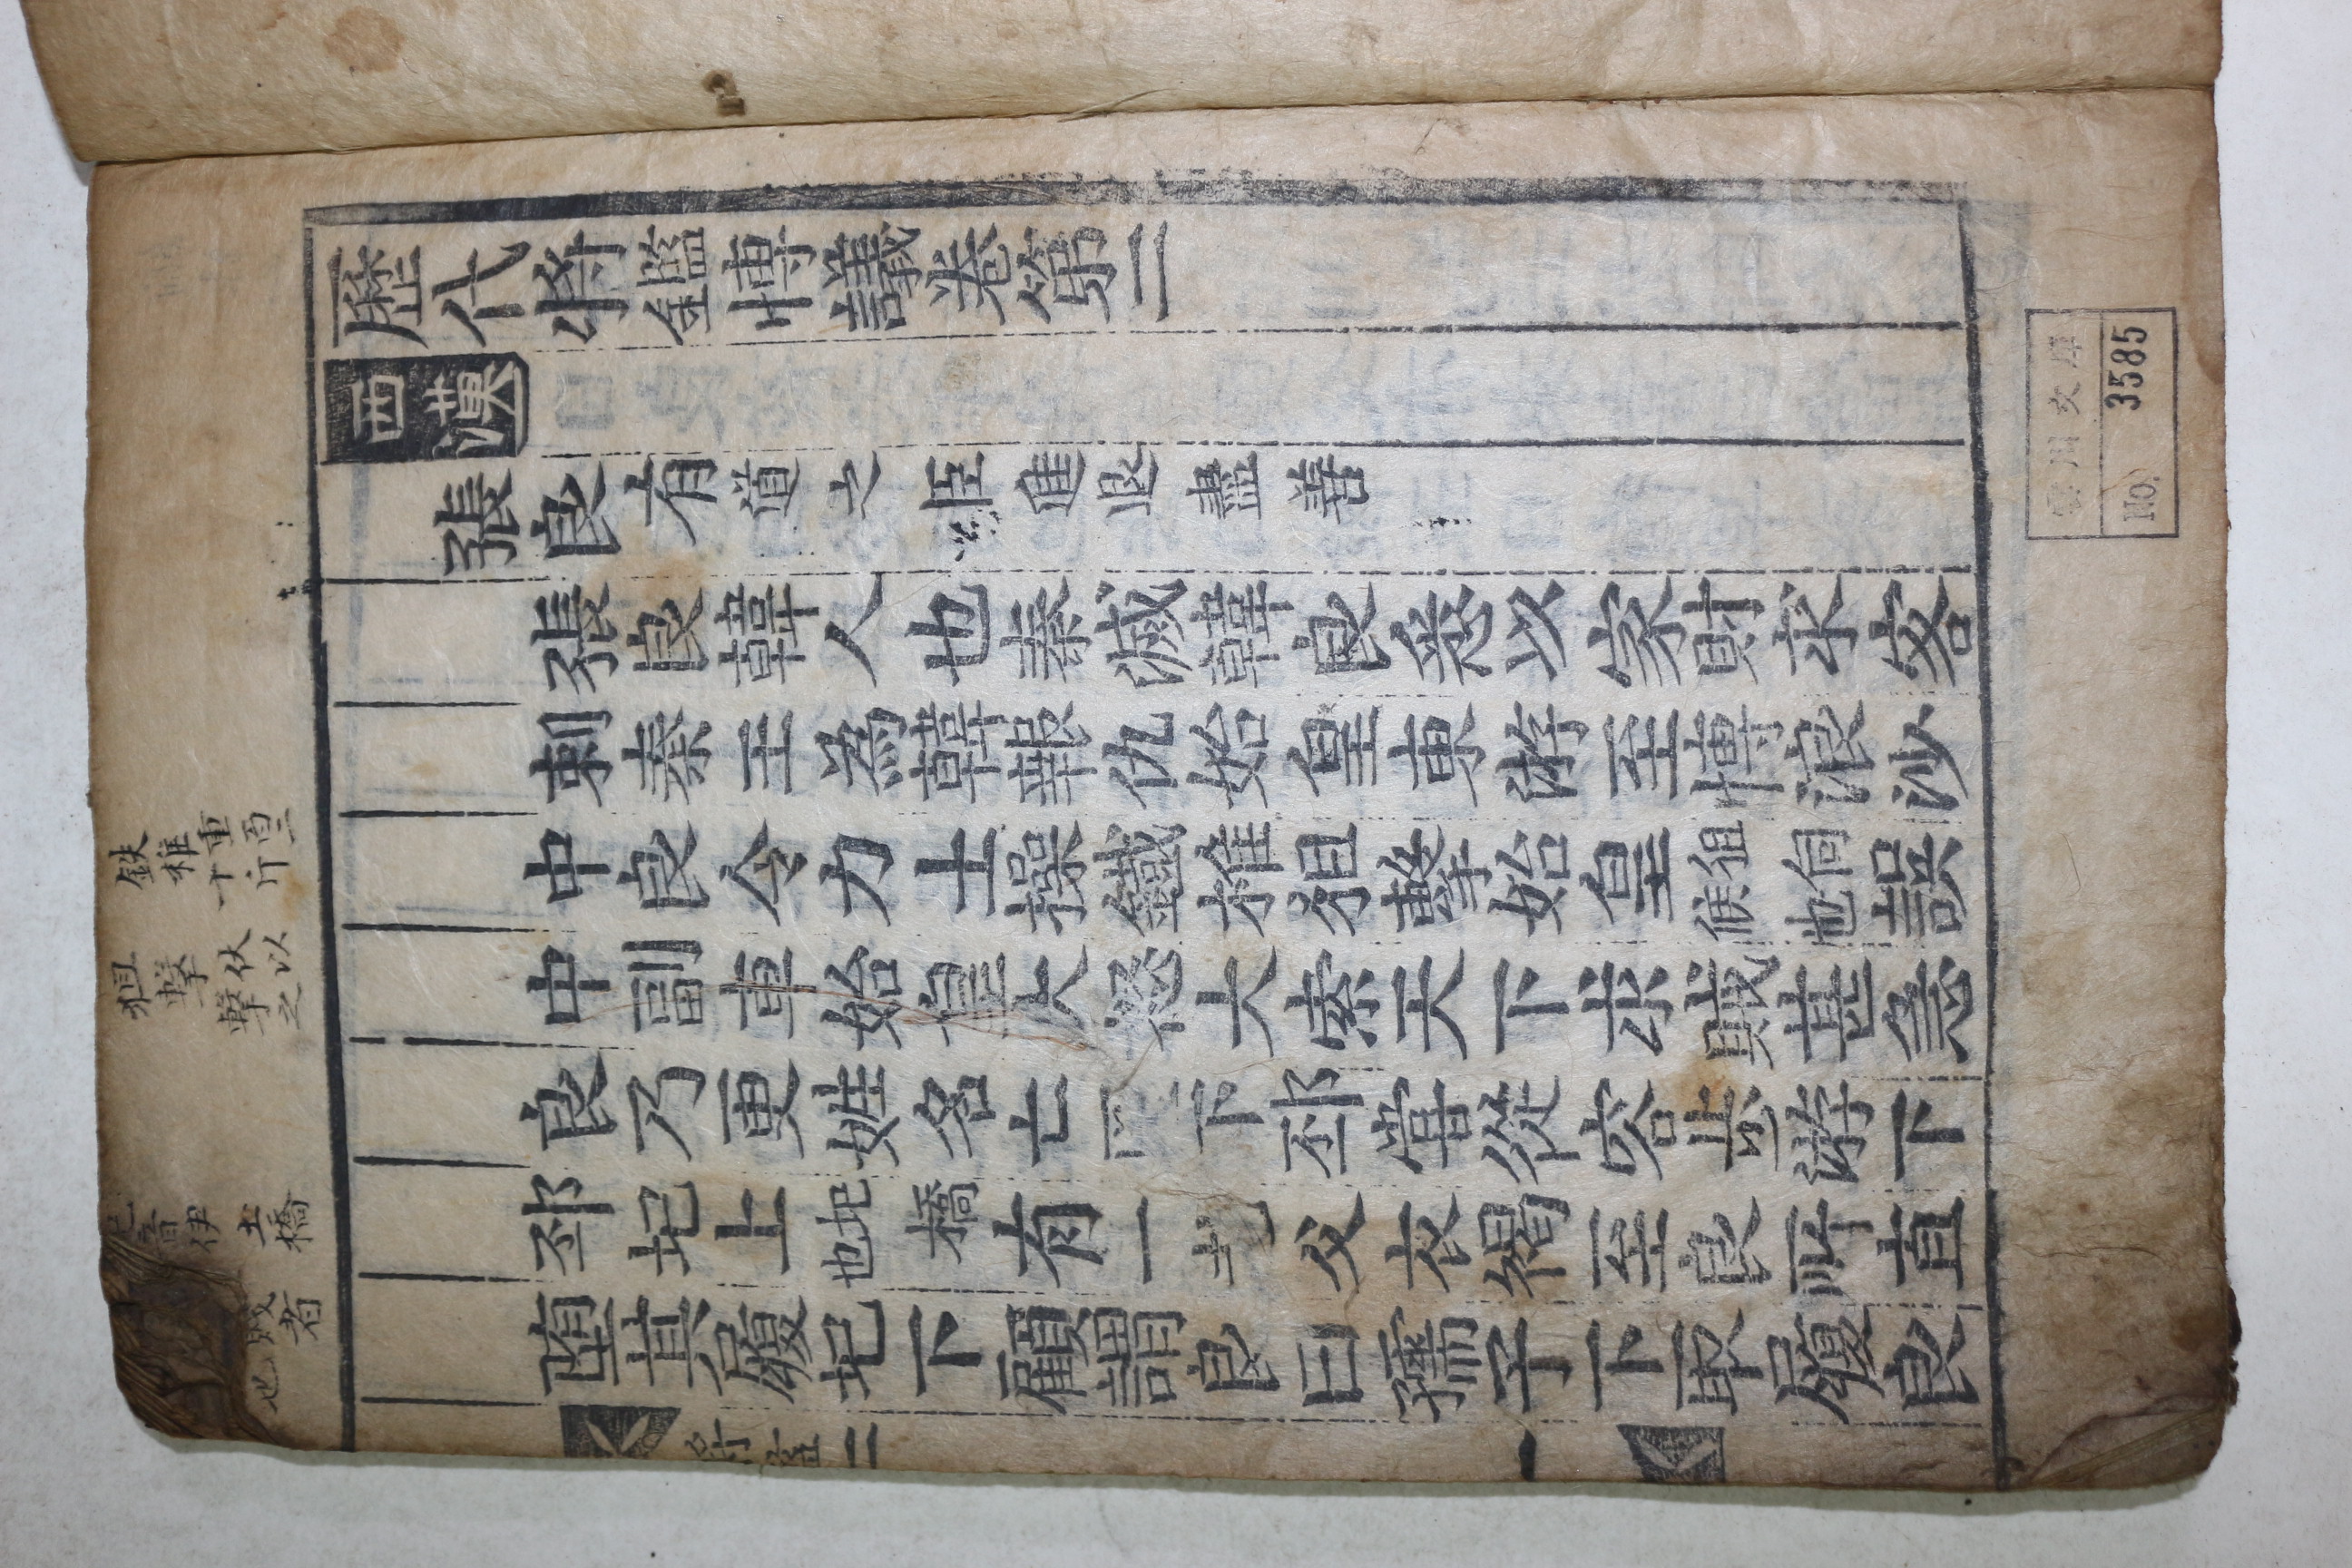 歷代將鑑博議卷第二
西漢
張良 有道之臣進退盡善
張良韓人也秦滅韓良悉以家財求客
刺秦王爲韓報仇始皇東游至博浪沙
中良令力士操鐵椎狙擊始皇 狙伺候也 誤
中副車始皇大怒大索天下求賊甚急
良乃更姓名亡匿下邳嘗從容步游下
邳圯上 圯橋也 有一老父衣褐至良所直
墮其履圯下顧謂良曰孺子下取履良
將鑑二 一
鉄椎重百二十斤
狙擊伏以擊之
音伊土橋
賤者也
文庫
No. 3585